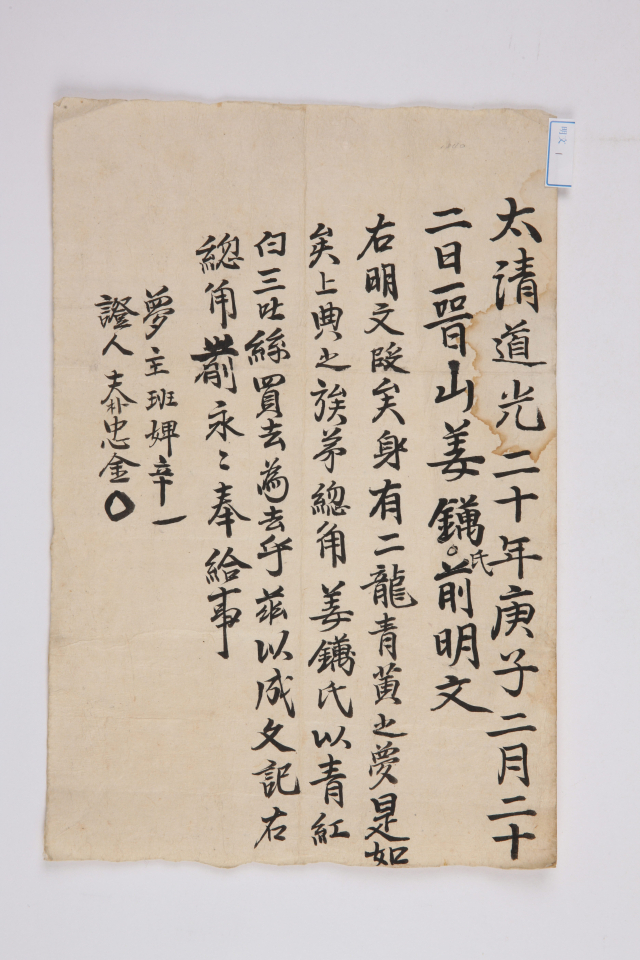 太清道光二十年庚子二月二十
二日晉山姜鏋氏前明文
右明文段矣身有二龍青黃之夢是如
矣上典之族弟總角姜鏋氏以青紅
白三吐絲買去為去乎茲以成文記右
總角前永〻奉給事
夢主班婢辛一
證人夫朴忠金
明文 1